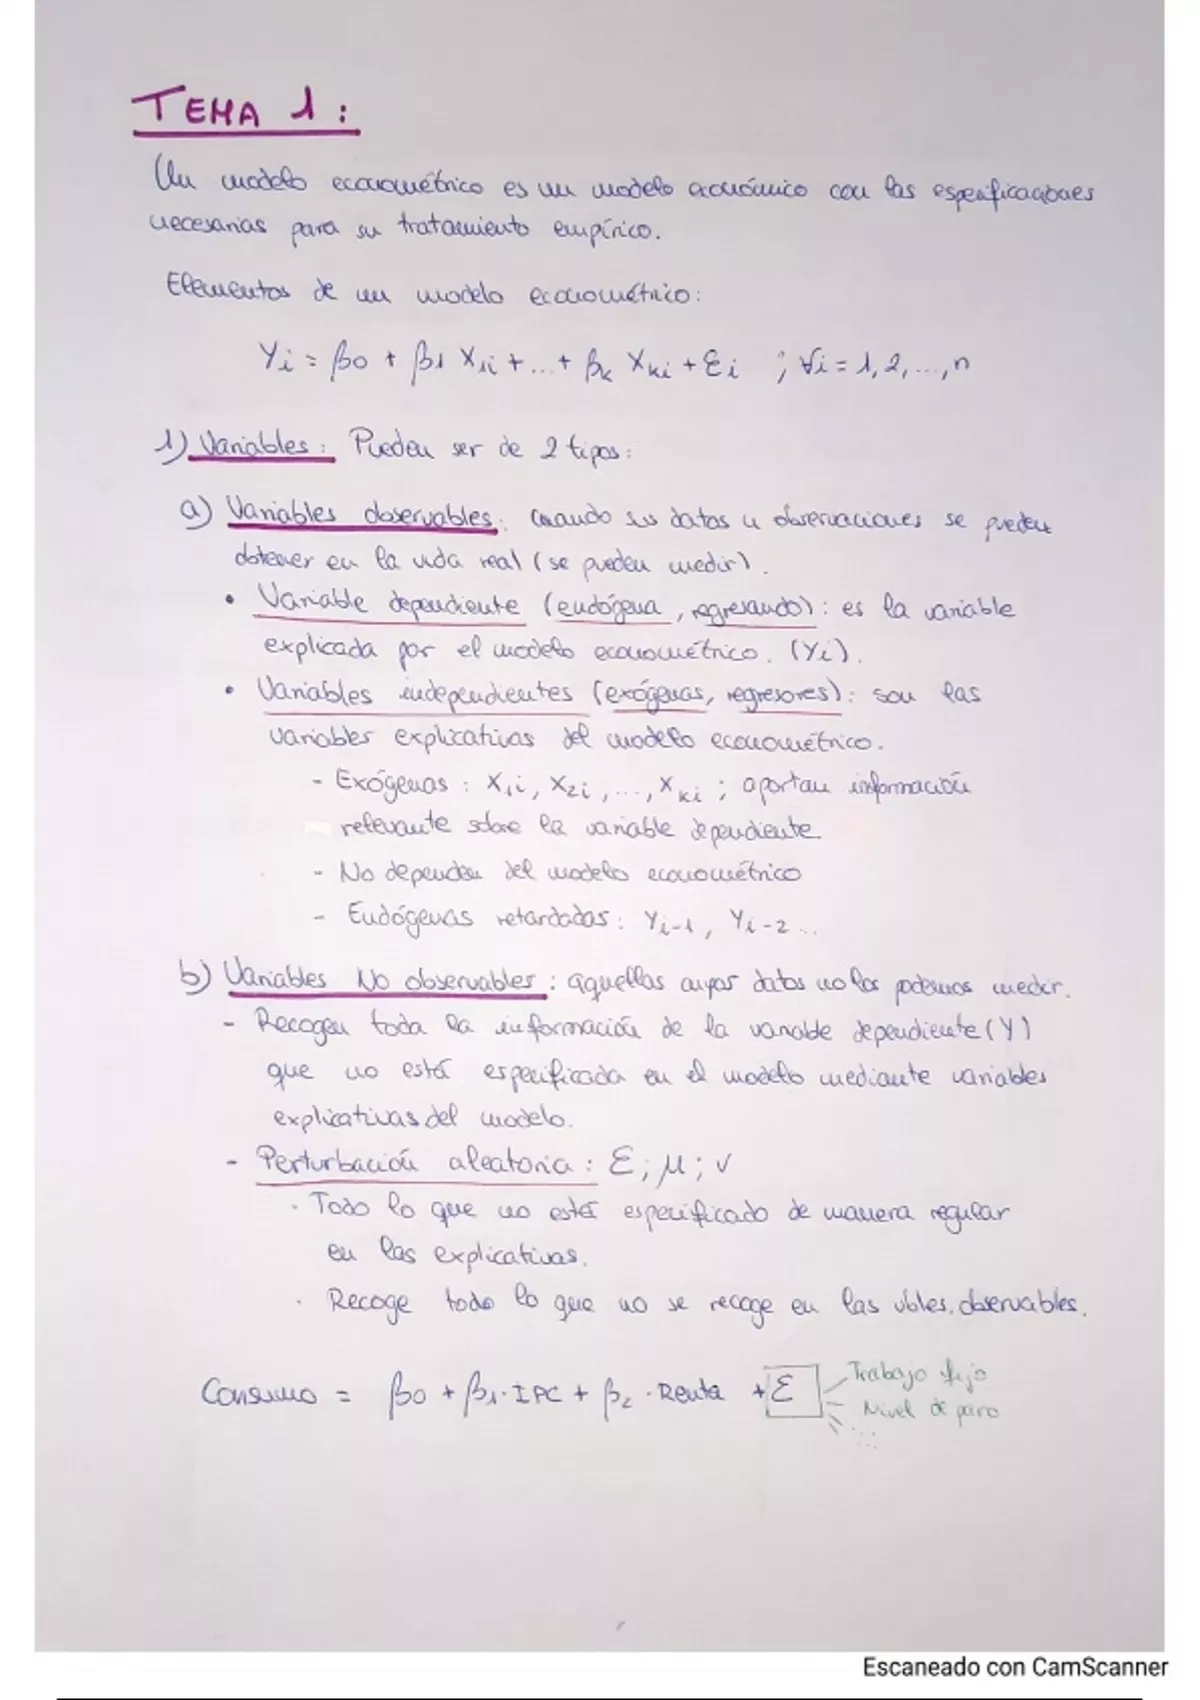 TEMA 1:
Un modelo econométrico es un modelo económico con las especificaciones
necesarias para su tratamiento empírico.
Elementos de un modelo econométrico:
Yi = β0 + β1 X1i + ... + βk Xki + Ei ; ∀i = 1, 2, ..., n
1) Variables: Pueden ser de 2 tipos:
a) Variables observables: cuando sus datos u observaciones se pueden
obtener en la vida real (se pueden medir).
• Variable dependiente (endógena, regresando): es la variable
explicada por el modelo econométrico. (Yi).
• Variables independientes (exógenas, regresores): son las
variables explicativas del modelo econométrico.
- Exógenas: X1i, X2i, ..., Xki ; aportan información
relevante sobre la variable dependiente.
- No dependen del modelo econométrico
- Endógenas retardadas: Yi-1, Yi-2 ...
b) Variables No observables: aquellas cuyos datos no los podemos medir.
- Recogen toda la información de la variable dependiente (Y)
que no está especificada en el modelo mediante variables
explicativas del modelo.
- Perturbación aleatoria: Ɛ; μ; v
· Todo lo que no está especificado de manera regular
en las explicativas.
· Recoge todo lo que no se recoge en las vbles. observables.
Consumo = β0 + β1 · IPC + β2 · Renta + Ɛ
Trabajo fijo
Nivel de paro
...
Escaneado con CamScanner